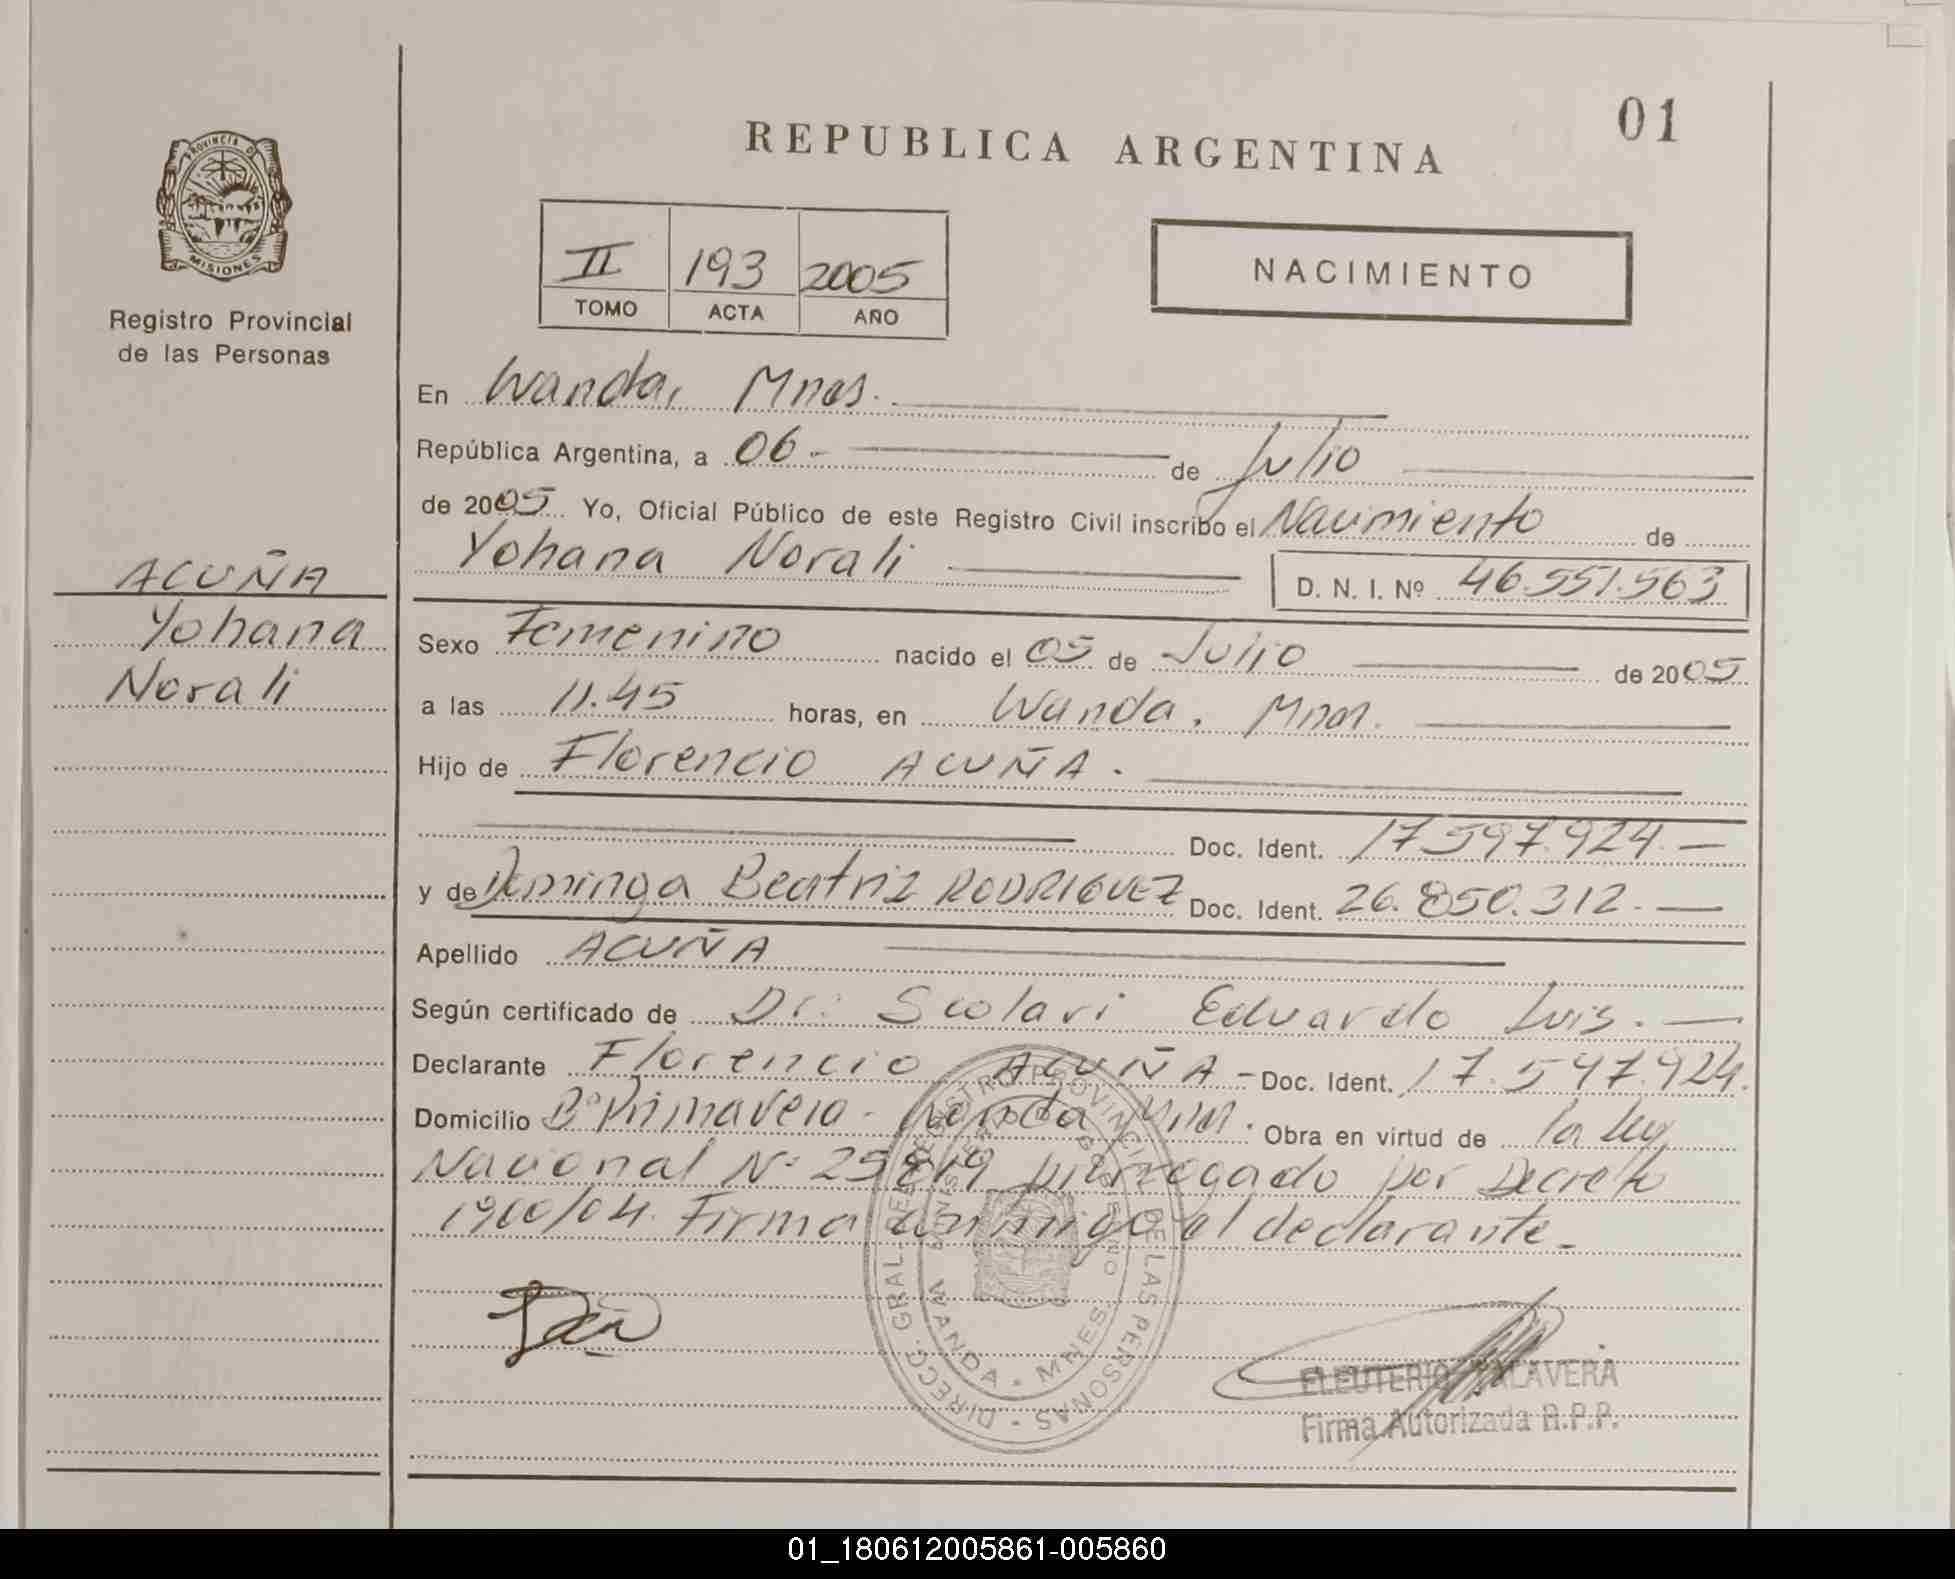 01
REPUBLICA ARGENTINA
PROVINCIA DE
MISIONES
Registro Provincial
de las Personas
II 193 2005
TOMO ACTA AÑO
NACIMIENTO
ACUÑA
Yohana
Norali
En Wanda, Mnes.
República Argentina, a 06 de Julio
de 2005 Yo, Oficial Público de este Registro Civil inscribo el Nacimiento de
Yohana Norali D. N. I. Nº 46.551.563
Sexo Femenino nacido el 05 de Julio de 2005
a las 11.45 horas, en Wanda. Mnes.
Hijo de Florencio ACUÑA.
Doc. Ident. 17.597.924.
y de Dominga Beatriz RODRIGUEZ Doc. Ident. 26.850.312.
Apellido ACUÑA
Según certificado de Dr. Scolari Eduardo Luis.
Declarante Florencio ACUÑA - Doc. Ident. 17.597.924.
Domicilio Bº Primavera - Wanda Mnes. Obra en virtud de la ley
Nacional Nº 25819 prorrogado por Decreto
1900/04. Firma conmigo el declarante.
DIRECC. GRAL. DEL REGISTRO PROVINCIAL DE LAS PERSONAS
MINISTERIO DE GOBIERNO
WANDA - MNES.
ELEUTERIO TALAVERA
Firma Autorizada R.P.P.
01_180612005861-005860